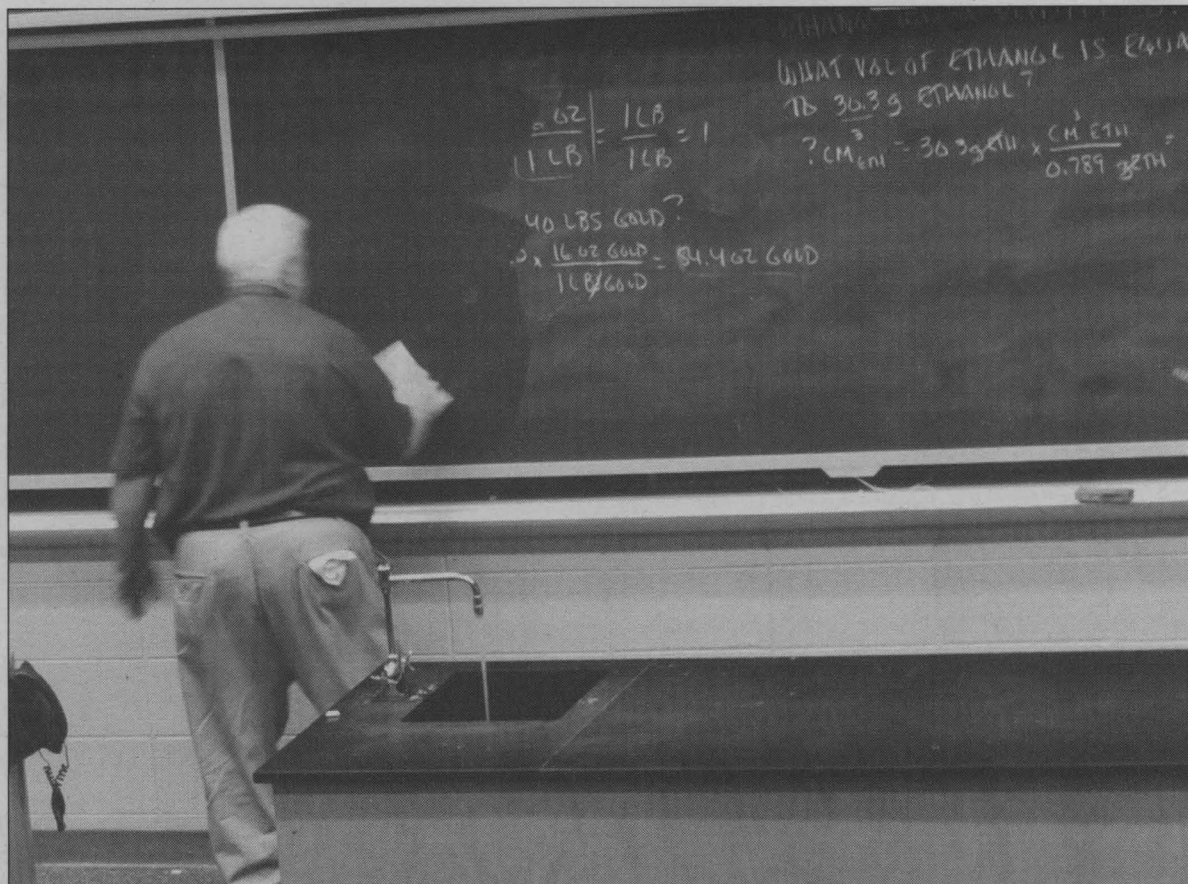 WHAT VOL OF ETHANOL IS EQUA
TO 30.3 g ETHANOL?
? CM³ ETH = 30.3 g ETH × CM³ ETH / 0.789 g ETH =
OZ / 1 LB = 1 LB / 1 LB = 1
40 LBS GOLD?
× 16 OZ GOLD / 1 LB GOLD = 54.4 OZ GOLD